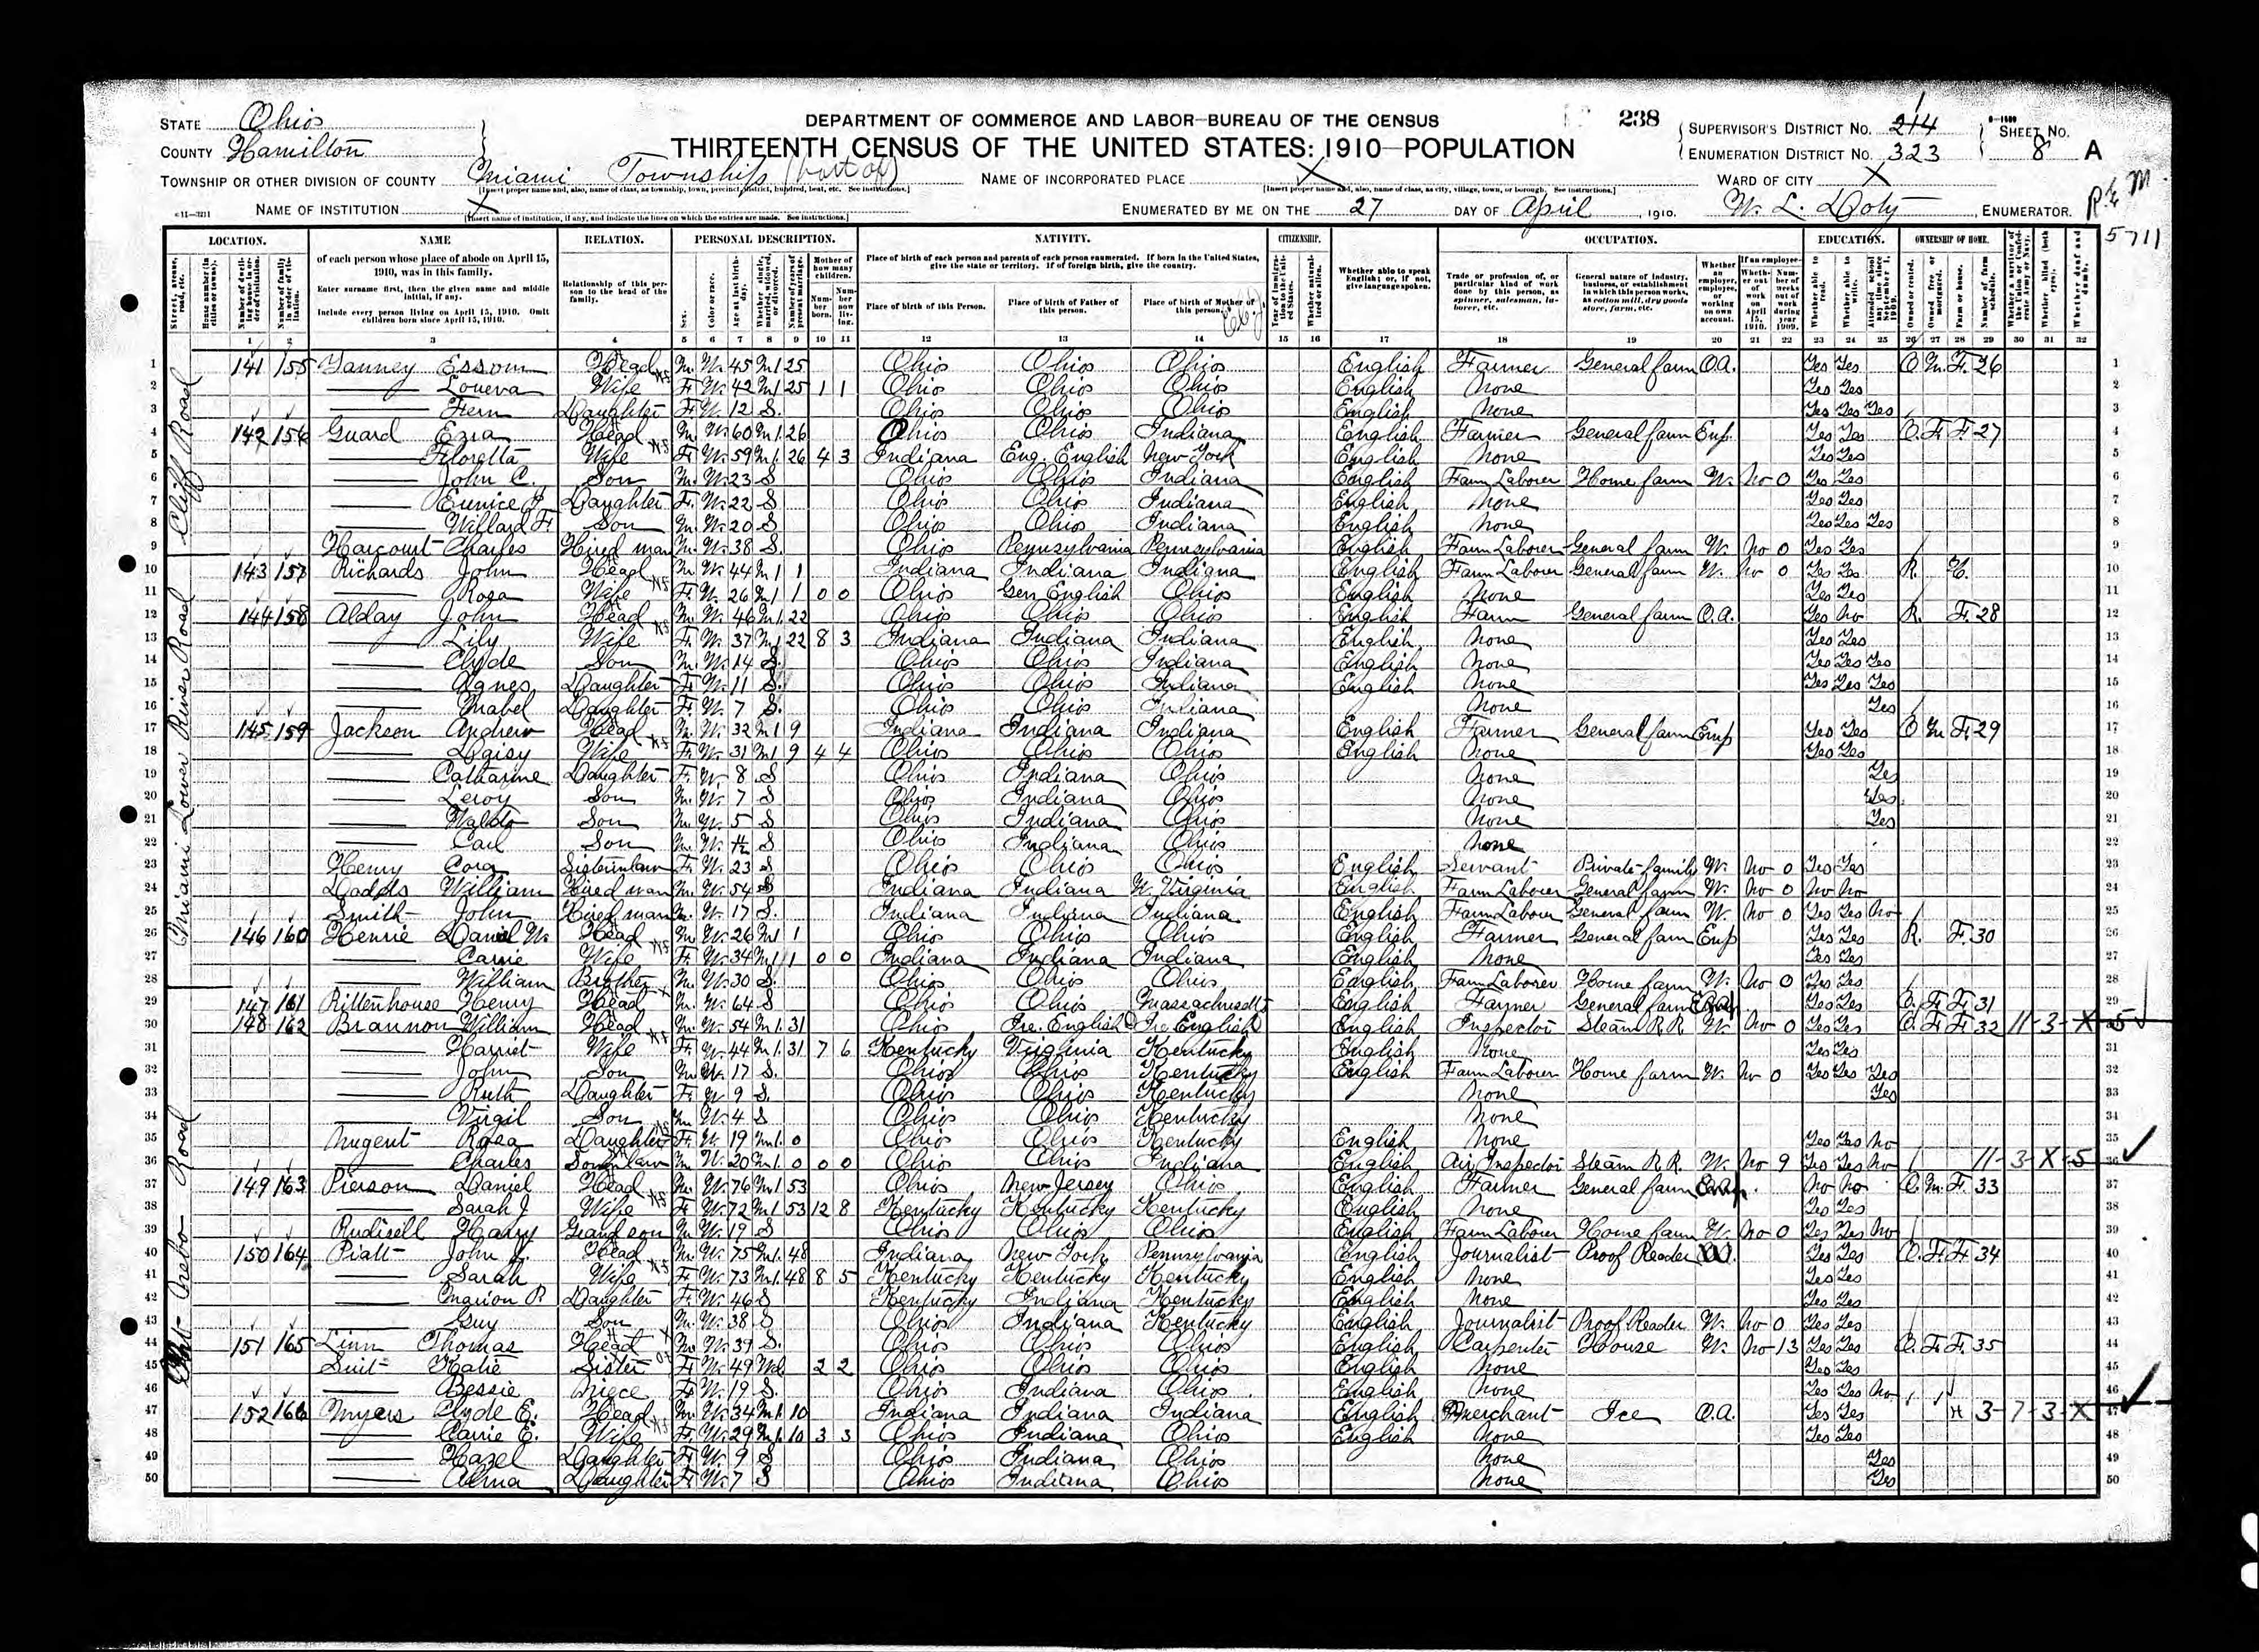 STATE Ohio
COUNTY Hamilton
DEPARTMENT OF COMMERCE AND LABOR—BUREAU OF THE CENSUS
THIRTEENTH CENSUS OF THE UNITED STATES: 1910—POPULATION
238
SUPERVISOR'S DISTRICT No. 214 1
ENUMERATION DISTRICT No. 323
SHEET No. 8 A
TOWNSHIP OR OTHER DIVISION OF COUNTY Miami Township (part of)
NAME OF INCORPORATED PLACE X
WARD OF CITY X
NAME OF INSTITUTION X
ENUMERATED BY ME ON THE 27 DAY OF April, 1910. W. L. Doty, ENUMERATOR.
5711
LOCATION. NAME RELATION. PERSONAL DESCRIPTION. NATIVITY. CITIZENSHIP. OCCUPATION. EDUCATION. OWNERSHIP OF HOME.
of each person whose place of abode on April 15, 1910, was in this family.
Enter surname first, then the given name and middle initial, if any.
Include every person living on April 15, 1910. Omit children born since April 15, 1910.
Relationship of this person to the head of the family.
Place of birth of each person and parents of each person enumerated. If born in the United States, give the state or territory. If of foreign birth, give the country.
Place of birth of this Person. Place of birth of Father of this person. Place of birth of Mother of this person.
Whether able to speak English; or, if not, give language spoken.
Trade or profession of, or particular kind of work done by this person, as spinner, salesman, laborer, etc.
General nature of industry, business, or establishment in which this person works, as cotton mill, dry goods store, farm, etc.
Cliff Road
Miami Lower River Road
Road
1 141 155 Essom Head M W 45 M1 25 Ohio Ohio Ohio English Farmer General farm O.A. Yes Yes O M F 26
2 Loueva Wife F W 42 M1 25 1 1 Ohio Ohio Ohio English None Yes Yes
3 Fern Daughter F W 12 S Ohio Ohio Ohio English None Yes Yes Yes
4 142 156 Guard Ezra Head M W 60 M1 26 Ohio Ohio Indiana English Farmer General farm Emp Yes Yes O F F 27
5 Floretta Wife F W 59 M1 26 4 3 Indiana Eng. English New York English None Yes Yes
6 John C. Son M W 23 S Ohio Ohio Indiana English Farm Laborer Home farm W No 0 Yes Yes
7 Eunice J Daughter F W 22 S Ohio Ohio Indiana English None Yes Yes
8 Willard F. Son M W 20 S Ohio Ohio Indiana English None Yes Yes Yes
9 Harcourt Charles Hired man M W 38 S Ohio Pennsylvania Pennsylvania English Farm Laborer General farm W No 0 Yes Yes
10 143 157 Richards John Head M W 44 M1 1 Indiana Indiana Indiana English Farm Laborer General farm W No 0 Yes Yes R H
11 Rosa Wife F W 26 M1 1 0 0 Ohio Ger. English Ohio English None Yes Yes
12 144 158 Alday John Head M W 46 M1 22 Ohio Ohio Ohio English Farm General farm O.A. Yes No R F 28
13 Lily Wife F W 37 M1 22 8 3 Indiana Indiana Indiana English None Yes Yes
14 Clyde Son M W 14 S Ohio Ohio Indiana English None Yes Yes Yes
15 Agnes Daughter F W 11 S Ohio Ohio Indiana English None Yes Yes Yes
16 Mabel Daughter F W 7 S Ohio Ohio Indiana None Yes
17 145 159 Jackson Andrew Head M W 32 M1 9 Indiana Indiana Indiana English Farmer General farm Emp Yes Yes O M F 29
18 Daisy Wife F W 31 M1 9 4 4 Ohio Ohio Ohio English None Yes Yes
19 Catharine Daughter F W 8 S Ohio Indiana Ohio None Yes
20 Leroy Son M W 7 S Ohio Indiana Ohio None Yes
21 Waldo Son M W 5 S Ohio Indiana Ohio None Yes
22 Carl Son M W S Ohio Indiana Ohio None
23 Henry Cora Sister in law F W 23 S Ohio Ohio Ohio English Servant Private family W No 0 Yes Yes
24 Dodds William Hired man M W 54 S Indiana Indiana W. Virginia English Farm Laborer General farm W No 0 No No
25 Smith John Hired man M W 17 S Indiana Indiana Indiana English Farm Laborer General farm W No 0 Yes Yes No
26 146 160 Henrie Daniel W. Head M W 26 M1 1 Ohio Ohio Ohio English Farmer General farm Emp Yes Yes R F 30
27 Carrie Wife F W 34 M1 1 0 0 Indiana Indiana Indiana English None Yes Yes
28 William Brother M W 30 S Ohio Ohio Ohio English Farm Laborer Home farm W No 0 Yes Yes
29 147 161 Rittenhouse Henry Head M W 64 S Ohio Ohio Massachusetts English Farmer General farm Yes Yes O F F 31
30 148 162 Brannon William Head M W 54 M1 31 Ohio Ire. English Ire English English Inspector Steam R.R. W No 0 Yes Yes O F F 32 11-3-X-5
31 Harriet Wife F W 44 M1 31 7 6 Kentucky Virginia Kentucky English None Yes Yes
32 John Son M W 17 S Ohio Ohio Kentucky English Farm Laborer Home farm W No 0 Yes Yes Yes
33 Ruth Daughter F W 9 S Ohio Ohio Kentucky None Yes
34 Virgil Son M W 4 S Ohio Ohio Kentucky None
35 Nugent Daughter F W 19 M1 0 Ohio Ohio Kentucky English None Yes Yes No
36 Charles Son in law M W 20 M1 0 0 0 Ohio Ohio Indiana English Air Inspector Steam R.R. W No 9 Yes Yes No 11-3-X-5
37 149 163 Pierson Daniel Head M W 76 M1 53 Ohio New Jersey Ohio English Farmer General farm No No O M F 33
38 Sarah J Wife F W 72 M1 53 12 8 Kentucky Kentucky Kentucky English None Yes Yes
39 Rudisell Harry Grandson M W 17 S Ohio Ohio Ohio English Farm Laborer Home farm W No 0 Yes Yes No
40 150 164 Piatt John Head M W 75 M1 48 Indiana New York Pennsylvania English Journalist Proof Reader W Yes Yes O F F 34
41 Sarah Wife F W 73 M1 48 8 5 Kentucky Kentucky Kentucky English None Yes Yes
42 Marion P. Daughter F W 46 S Kentucky Indiana Kentucky English None Yes Yes
43 Guy Son M W 38 S Ohio Indiana Kentucky English Journalist Proof Reader W No 0 Yes Yes
44 151 165 Linn Thomas Head M W 39 S Ohio Ohio Ohio English Carpenter House W No 13 Yes Yes O F F 35
45 Suit Katie Sister F W 49 Wd 2 2 Ohio Ohio Ohio English None Yes Yes
46 Bessie Niece F W 19 S Ohio Indiana Ohio English None Yes Yes No
47 152 166 Myers Clyde E. Head M W 34 M1 10 Indiana Indiana Indiana English Merchant Ice O.A. Yes Yes H 3-7-3-X
48 Carrie E. Wife F W 29 M1 10 3 3 Ohio Indiana Ohio English None Yes Yes
49 Hazel Daughter F W 9 S Ohio Indiana Ohio None Yes
50 Alma Daughter F W 7 S Ohio Indiana Ohio None Yes